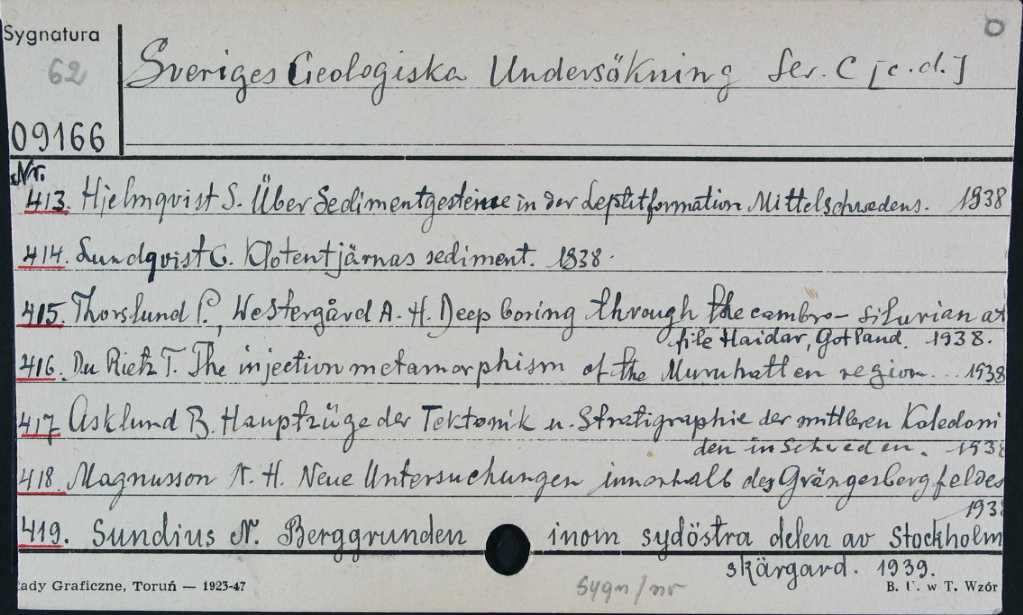 Sygnatura
62
09166
Sveriges Geologiska Undersökning Ser. C [c.d.]
Nr.
413. Hjelmqvist S. Über Sedimentgesteine in der Leptitformation Mittelschwedens. 1938
414. Lundqvist G. Klotentjärnas sediment. 1938.
415. Thorslund P., Westergård A. H. Deep boring through the cambro-silurian at
file Haidar, Gotland. 1938.
416. Du Rietz T. The injection metamorphism of the Muruhatten region... 1938
417 Asklund B. Hauptzüge der Tektonik u. Stratigraphie der mittleren Kaledoni
den in Schweden. 1938
418. Magnusson N. H. Neue Untersuchungen innerhalb des Grängesbergfeldes
1938
419. Sundius N. Berggrunden inom sydöstra delen av Stockholm
skärgard. 1939.
ady Graficzne, Toruń — 1923-47
Sygn/nr
B. U. w T. Wzór